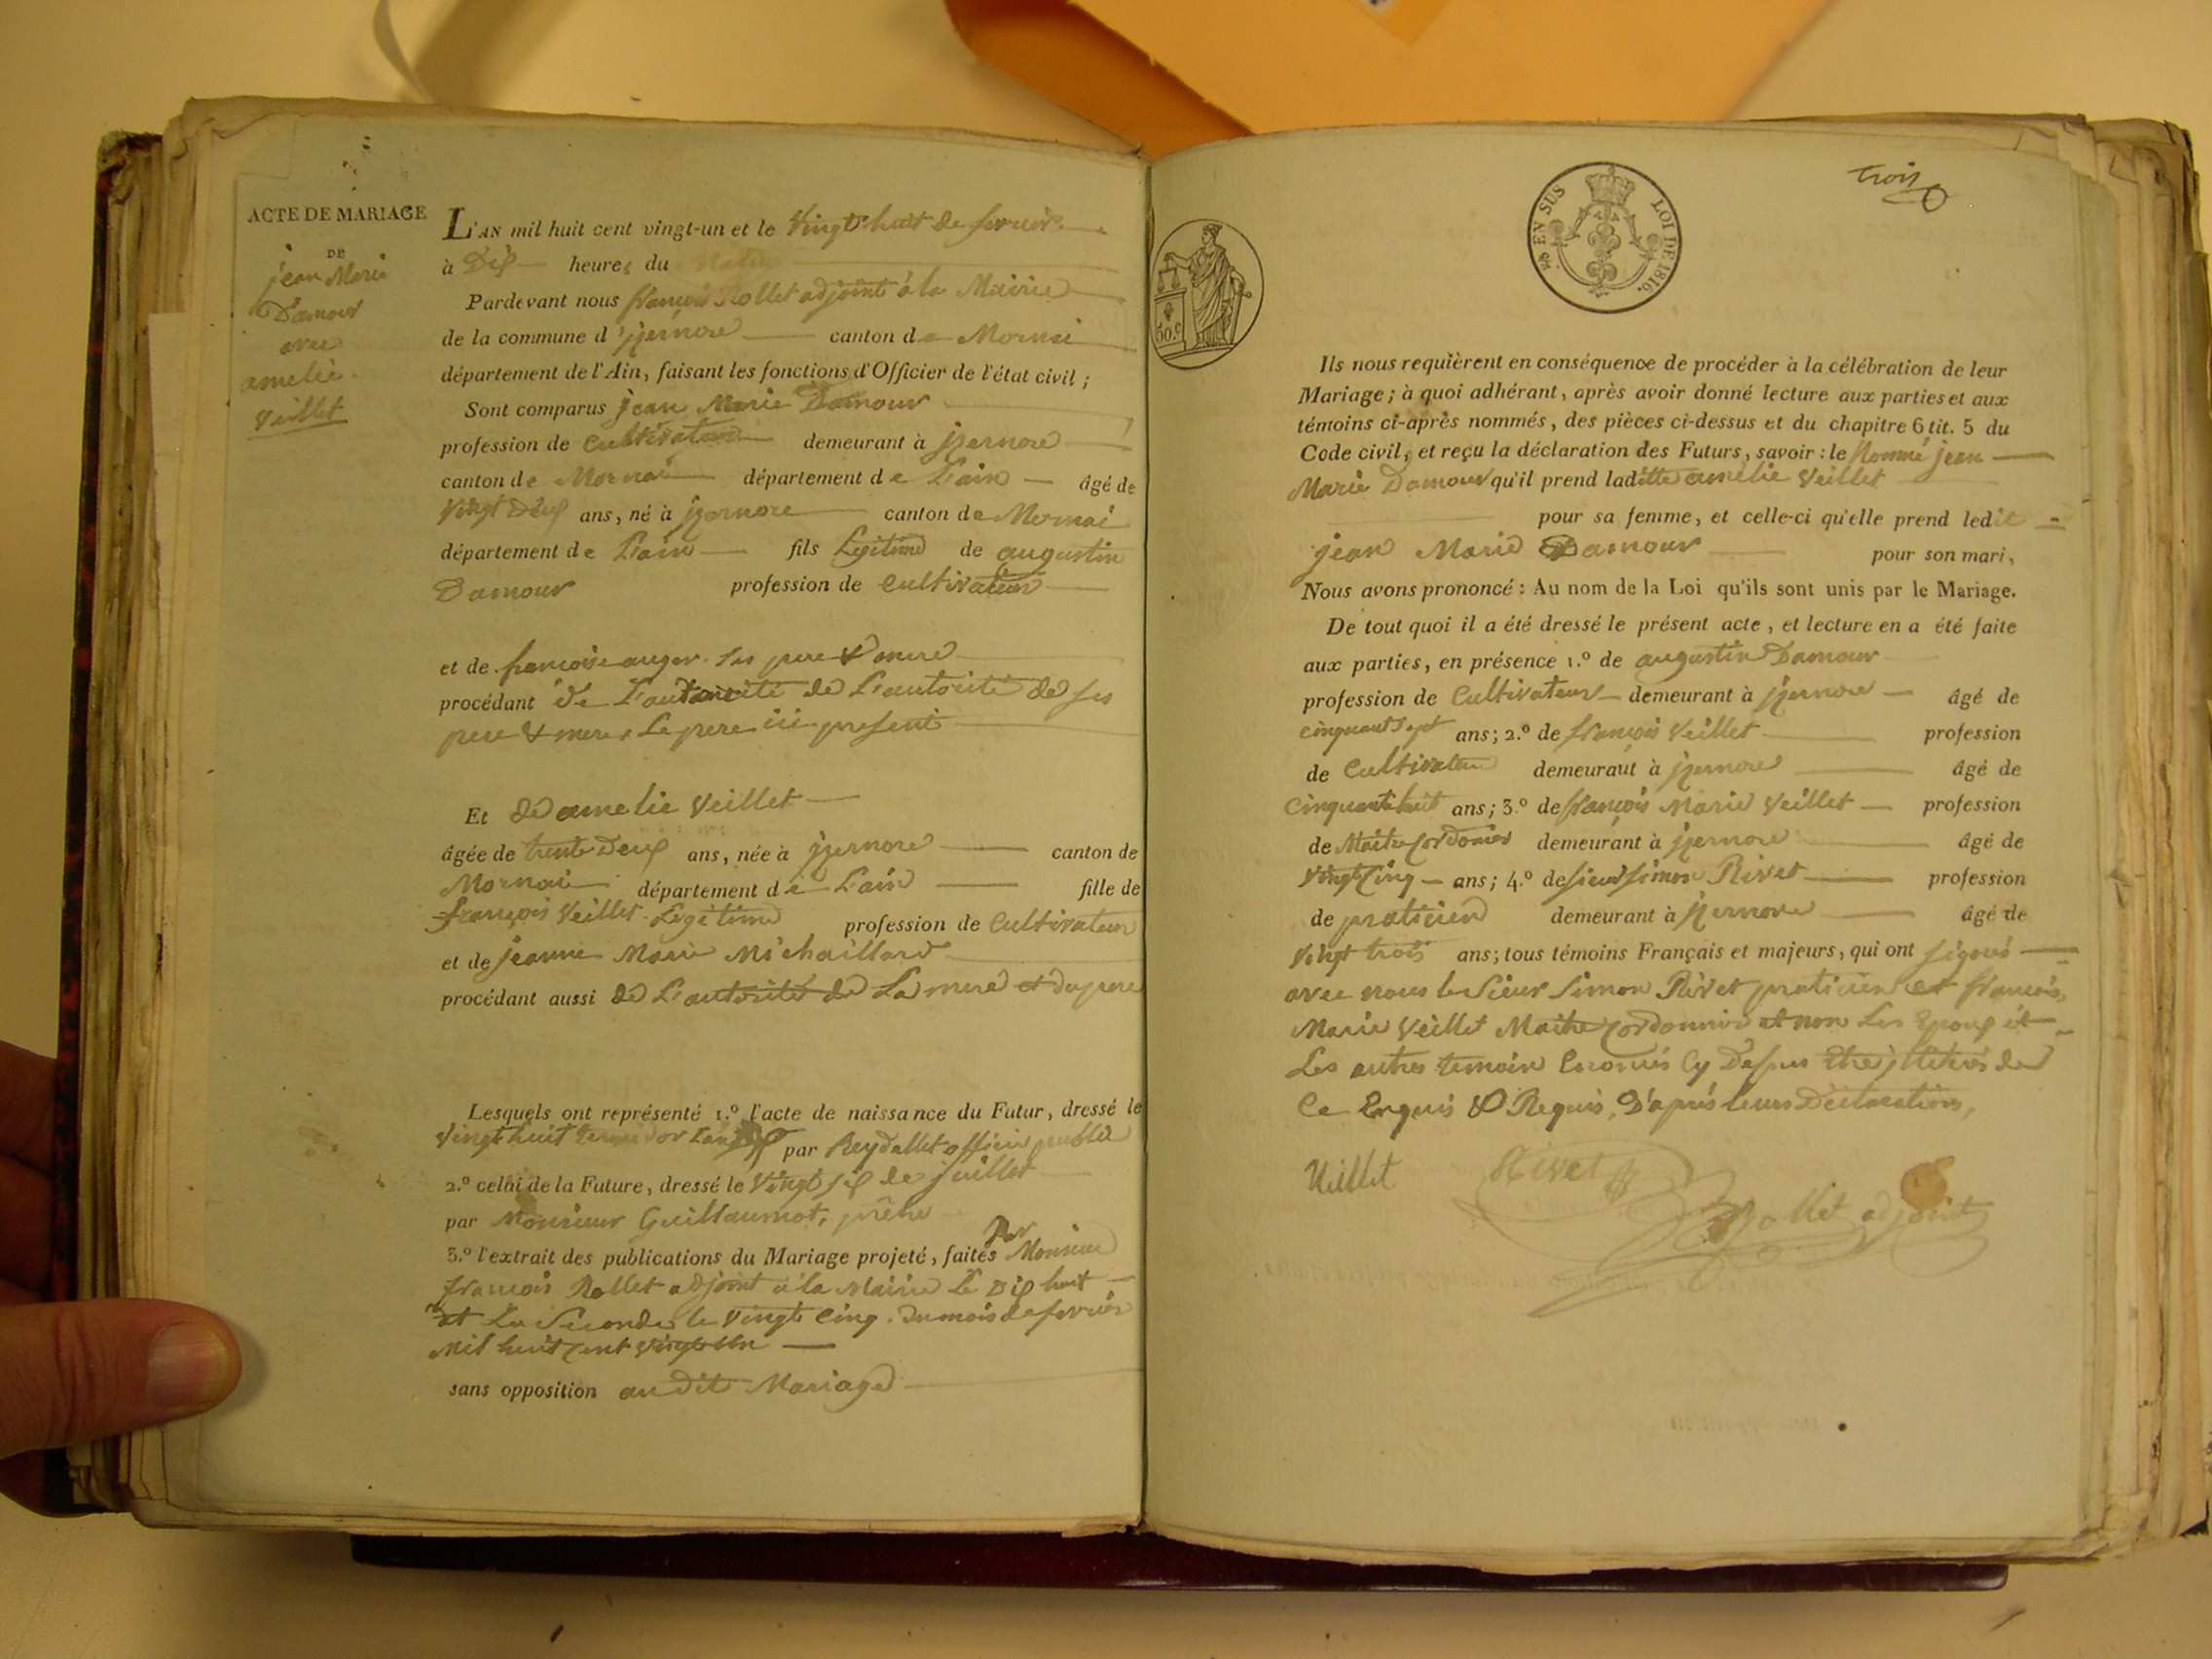 ACTE DE MARIAGE
DE
jean Marie
Damour
avec
amelie
Veillet
L'AN mil huit cent vingt-un et le Vingt huit de fevrier
à Dix heures du Matin
Pardevant nous françois Rollet adjoint à la Mairie
de la commune d'jzernore canton de Mornai
département de l'Ain, faisant les fonctions d'Officier de l'état civil ;
Sont comparus jean Marie Damour
profession de Cultivateur demeurant à jzernore
canton de Mornai département de L'ain âgé de
Vingt Deux ans, né à jzernore canton de Mornai
département de L'ain fils Legitime de augustin
Damour profession de Cultivateur
et de françoise auger ses pere & mere
procédant de L'autorité de L'autorité de ses
pere & mere, Le pere ici present
Et de amelie Veillet
âgée de trente Deux ans, née à jzernore canton de
Mornai département de L'ain fille de
françois Veillet Legitime profession de Cultivateur
et de jeanne Marie Michaillard
procédant aussi de L'autorité de La mere et du pere
Lesquels ont représenté 1.º l'acte de naissance du Futur, dressé le
Vingt huit par Reydellet officier public
2.º celui de la Future, dressé le Vingt six de juillet
par Monsieur Guillaumot, prêtre
3.º l'extrait des publications du Mariage projeté, faites Par Monsieur
françois Rollet adjoint à la Mairie Le Dix huit
et La Seconde le Vingt Cinq du mois de fevrier
Mil huit Cent Vingt Un
sans opposition au Dit Mariage
50.c
EN SUS LOI DE 1816.
trois
Ils nous requièrent en conséquence de procéder à la célébration de leur
Mariage ; à quoi adhérant, après avoir donné lecture aux parties et aux
témoins ci-après nommés, des pièces ci-dessus et du chapitre 6 tit. 5 du
Code civil, et reçu la déclaration des Futurs, savoir : le Nommé jean
Marie Damour qu'il prend laditte amélie Veillet
pour sa femme, et celle-ci qu'elle prend ledit
jean Marie Damour pour son mari,
Nous avons prononcé : Au nom de la Loi qu'ils sont unis par le Mariage.
De tout quoi il a été dressé le présent acte, et lecture en a été faite
aux parties, en présence 1.º de augustin Damour
profession de Cultivateur demeurant à jzernore âgé de
Cinquant Sept ans ; 2.º de françois Veillet profession
de Cultivateur demeurant à jzernore âgé de
Cinquante huit ans ; 3.º de françois Marie Veillet profession
de Maitre Cordonier demeurant à jzernore âgé de
Vingt Cinq ans ; 4.º de sieur Simon Rivet profession
de praticien demeurant à jzernore âgé de
Vingt trois ans ; tous témoins Français et majeurs, qui ont signés
avec nous le Sieur Simon Rivet praticien et françois
Marie Veillet Maitre Cordonnier et non Les Epoux et
Les autres temoins Enoncés Cy Dessus illitérés de
Ce Enquis & Requis, D'après leurs Déclarations,
Veillet Rivet
Rollet adjoint